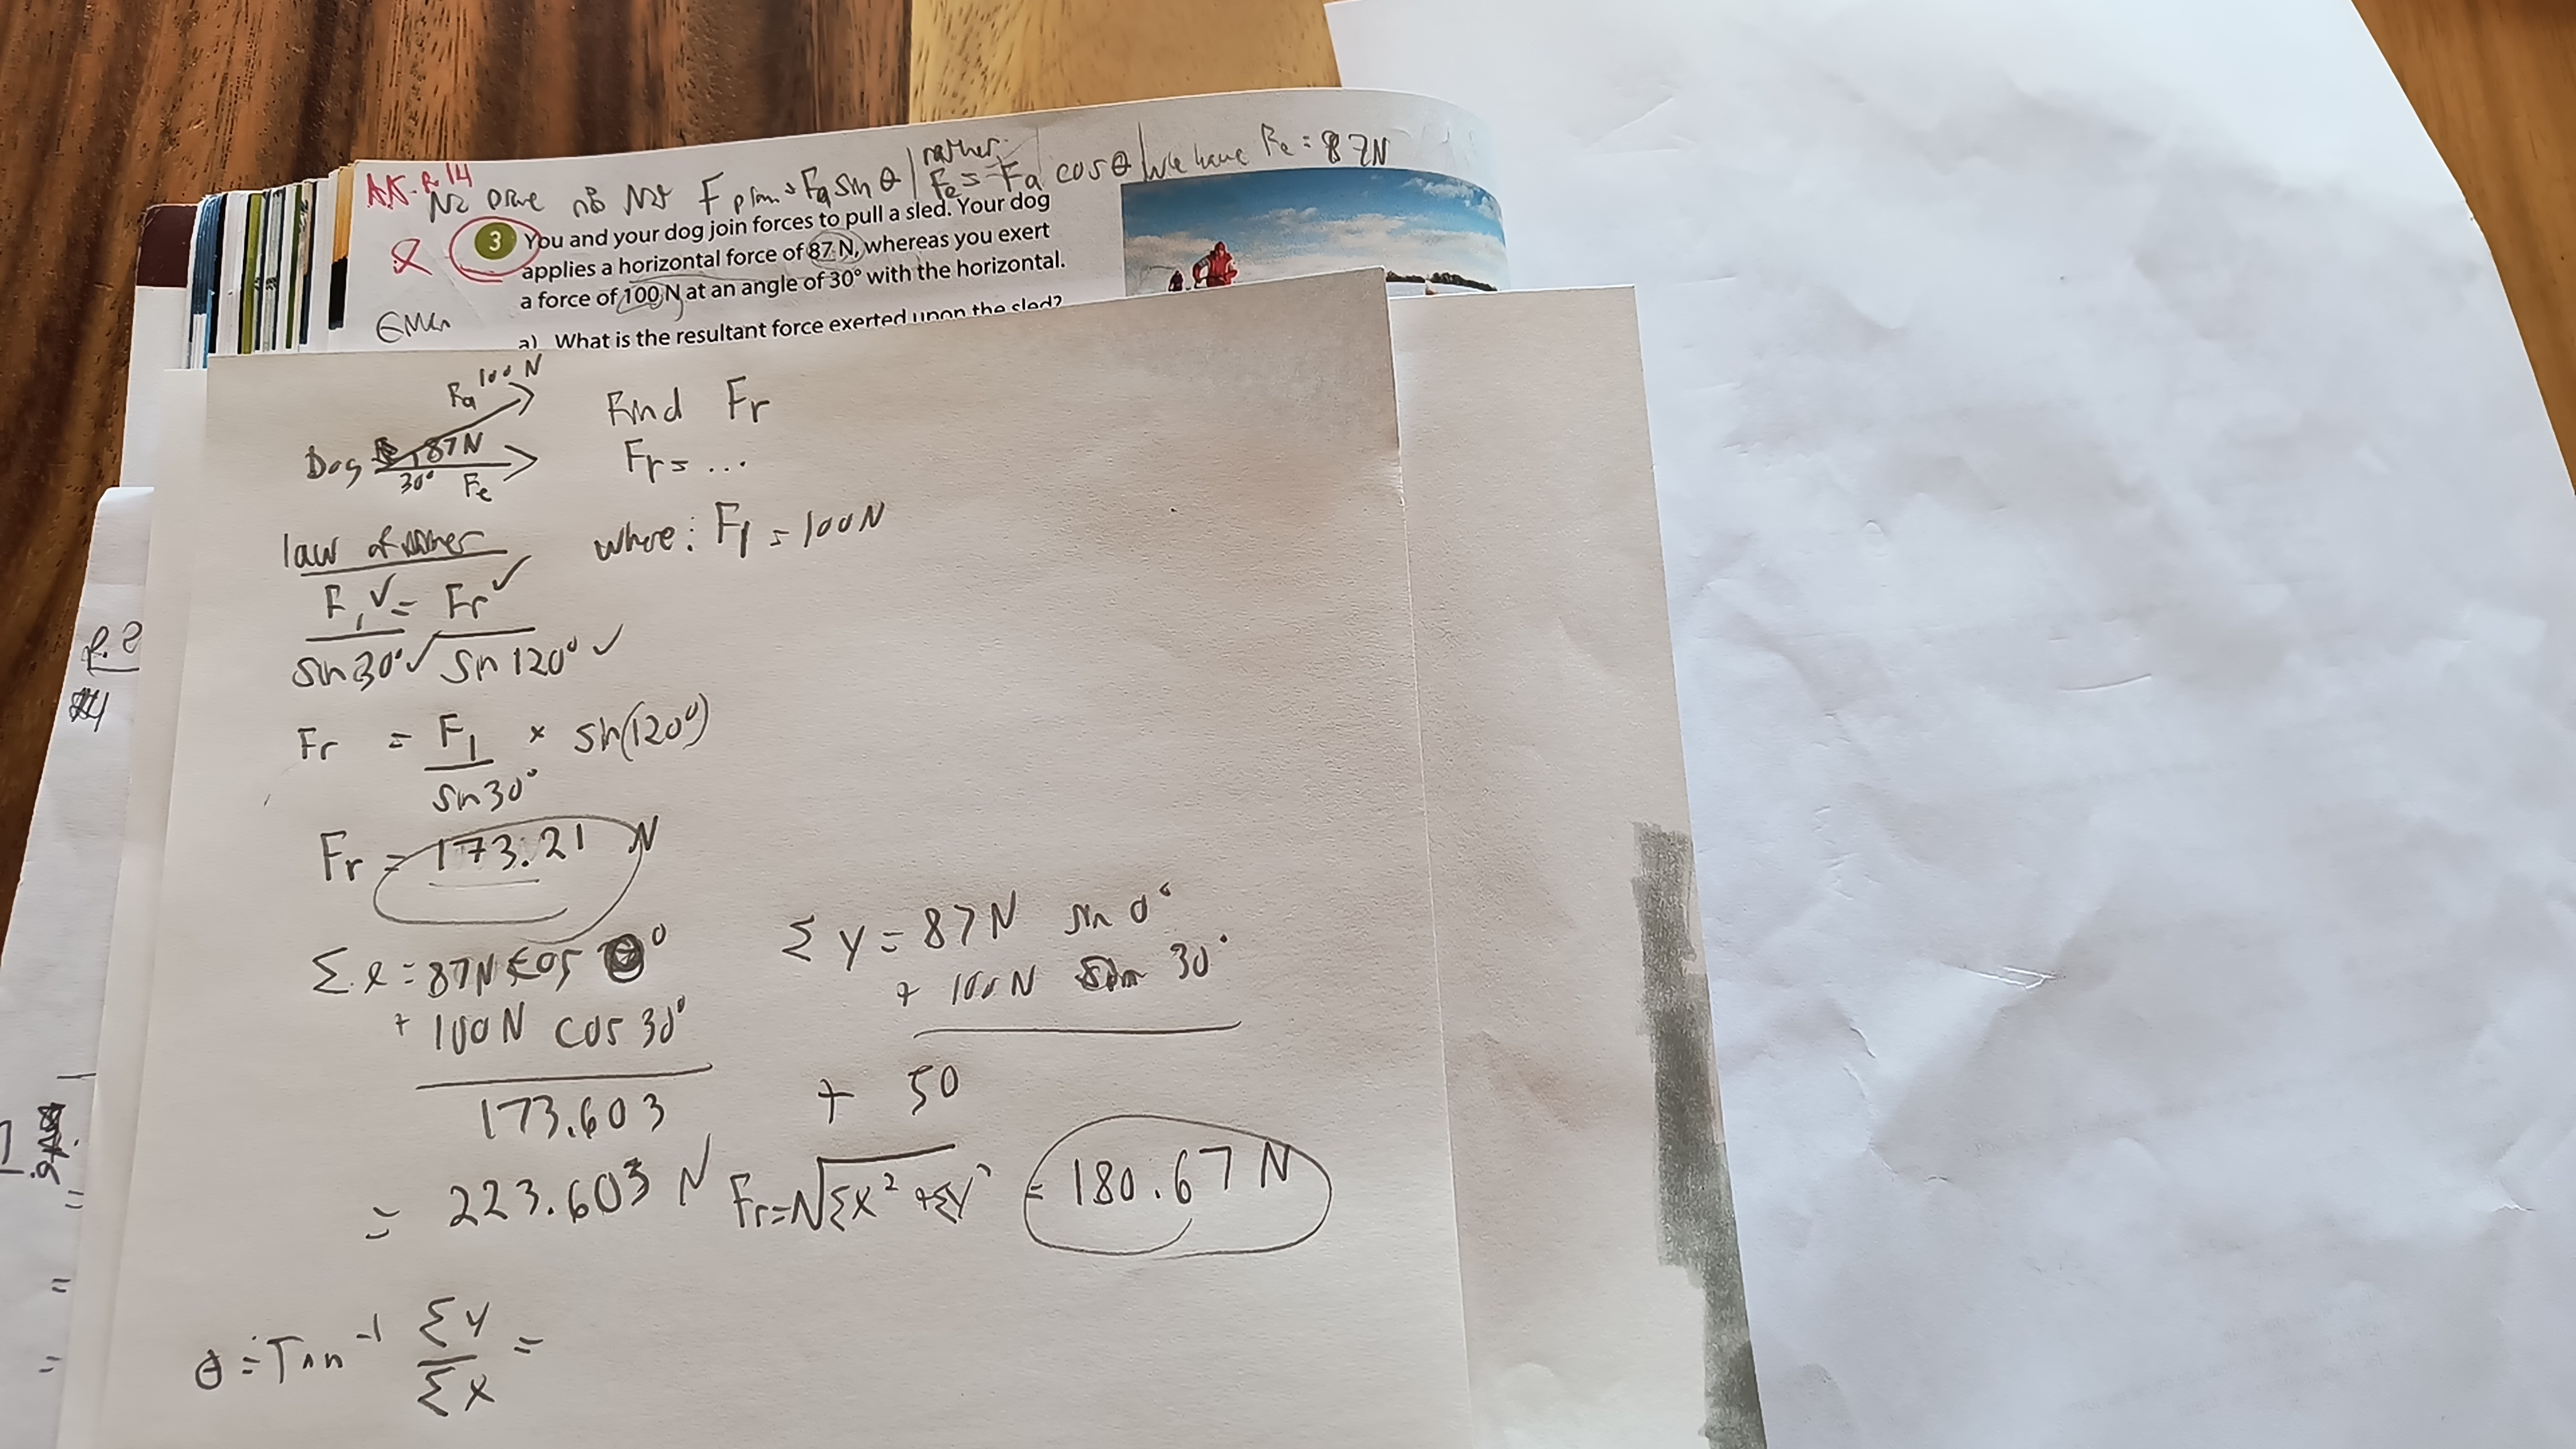 AK. P. 14
F = Fa sin θ | rather: Fe = Fa cos θ | We have Fe = 87N
3 You and your dog join forces to pull a sled. Your dog
applies a horizontal force of 87 N, whereas you exert
a force of 100 N at an angle of 30° with the horizontal.
a) What is the resultant force exerted upon the sled?
Fa 100 N
Dog 87N
30° Fe
Find Fr
Fr = ...
law of
where: F1 = 100N
F1 = Fr
sin30° sin120°
Fr = F1 × sin(120°)
sin30°
Fr = 173.21 N
Σx = 87N cos 0°
+ 100N cos 30°
173.603
Σy = 87N sin 0°
+ 100N sin 30°
+ 50
= 223.603 N
Fr = √Σx² + Σy² = 180.67 N
θ = Tan⁻¹ Σy =
Σx
P. 2